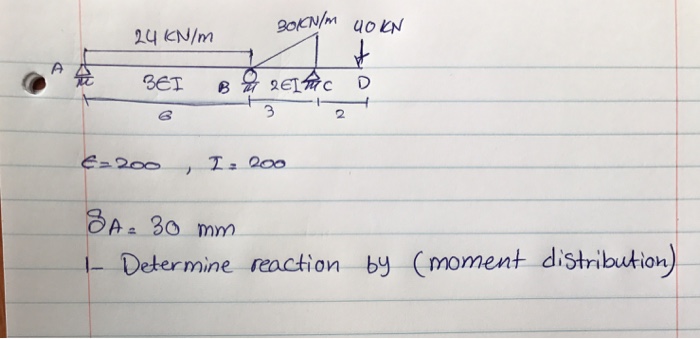 24 KN/m 30KN/m 40 KN
A 3EI B 2EI C D
6 3 2
E=200 , I = 200
δA = 30 mm
1- Determine reaction by (moment distribution)